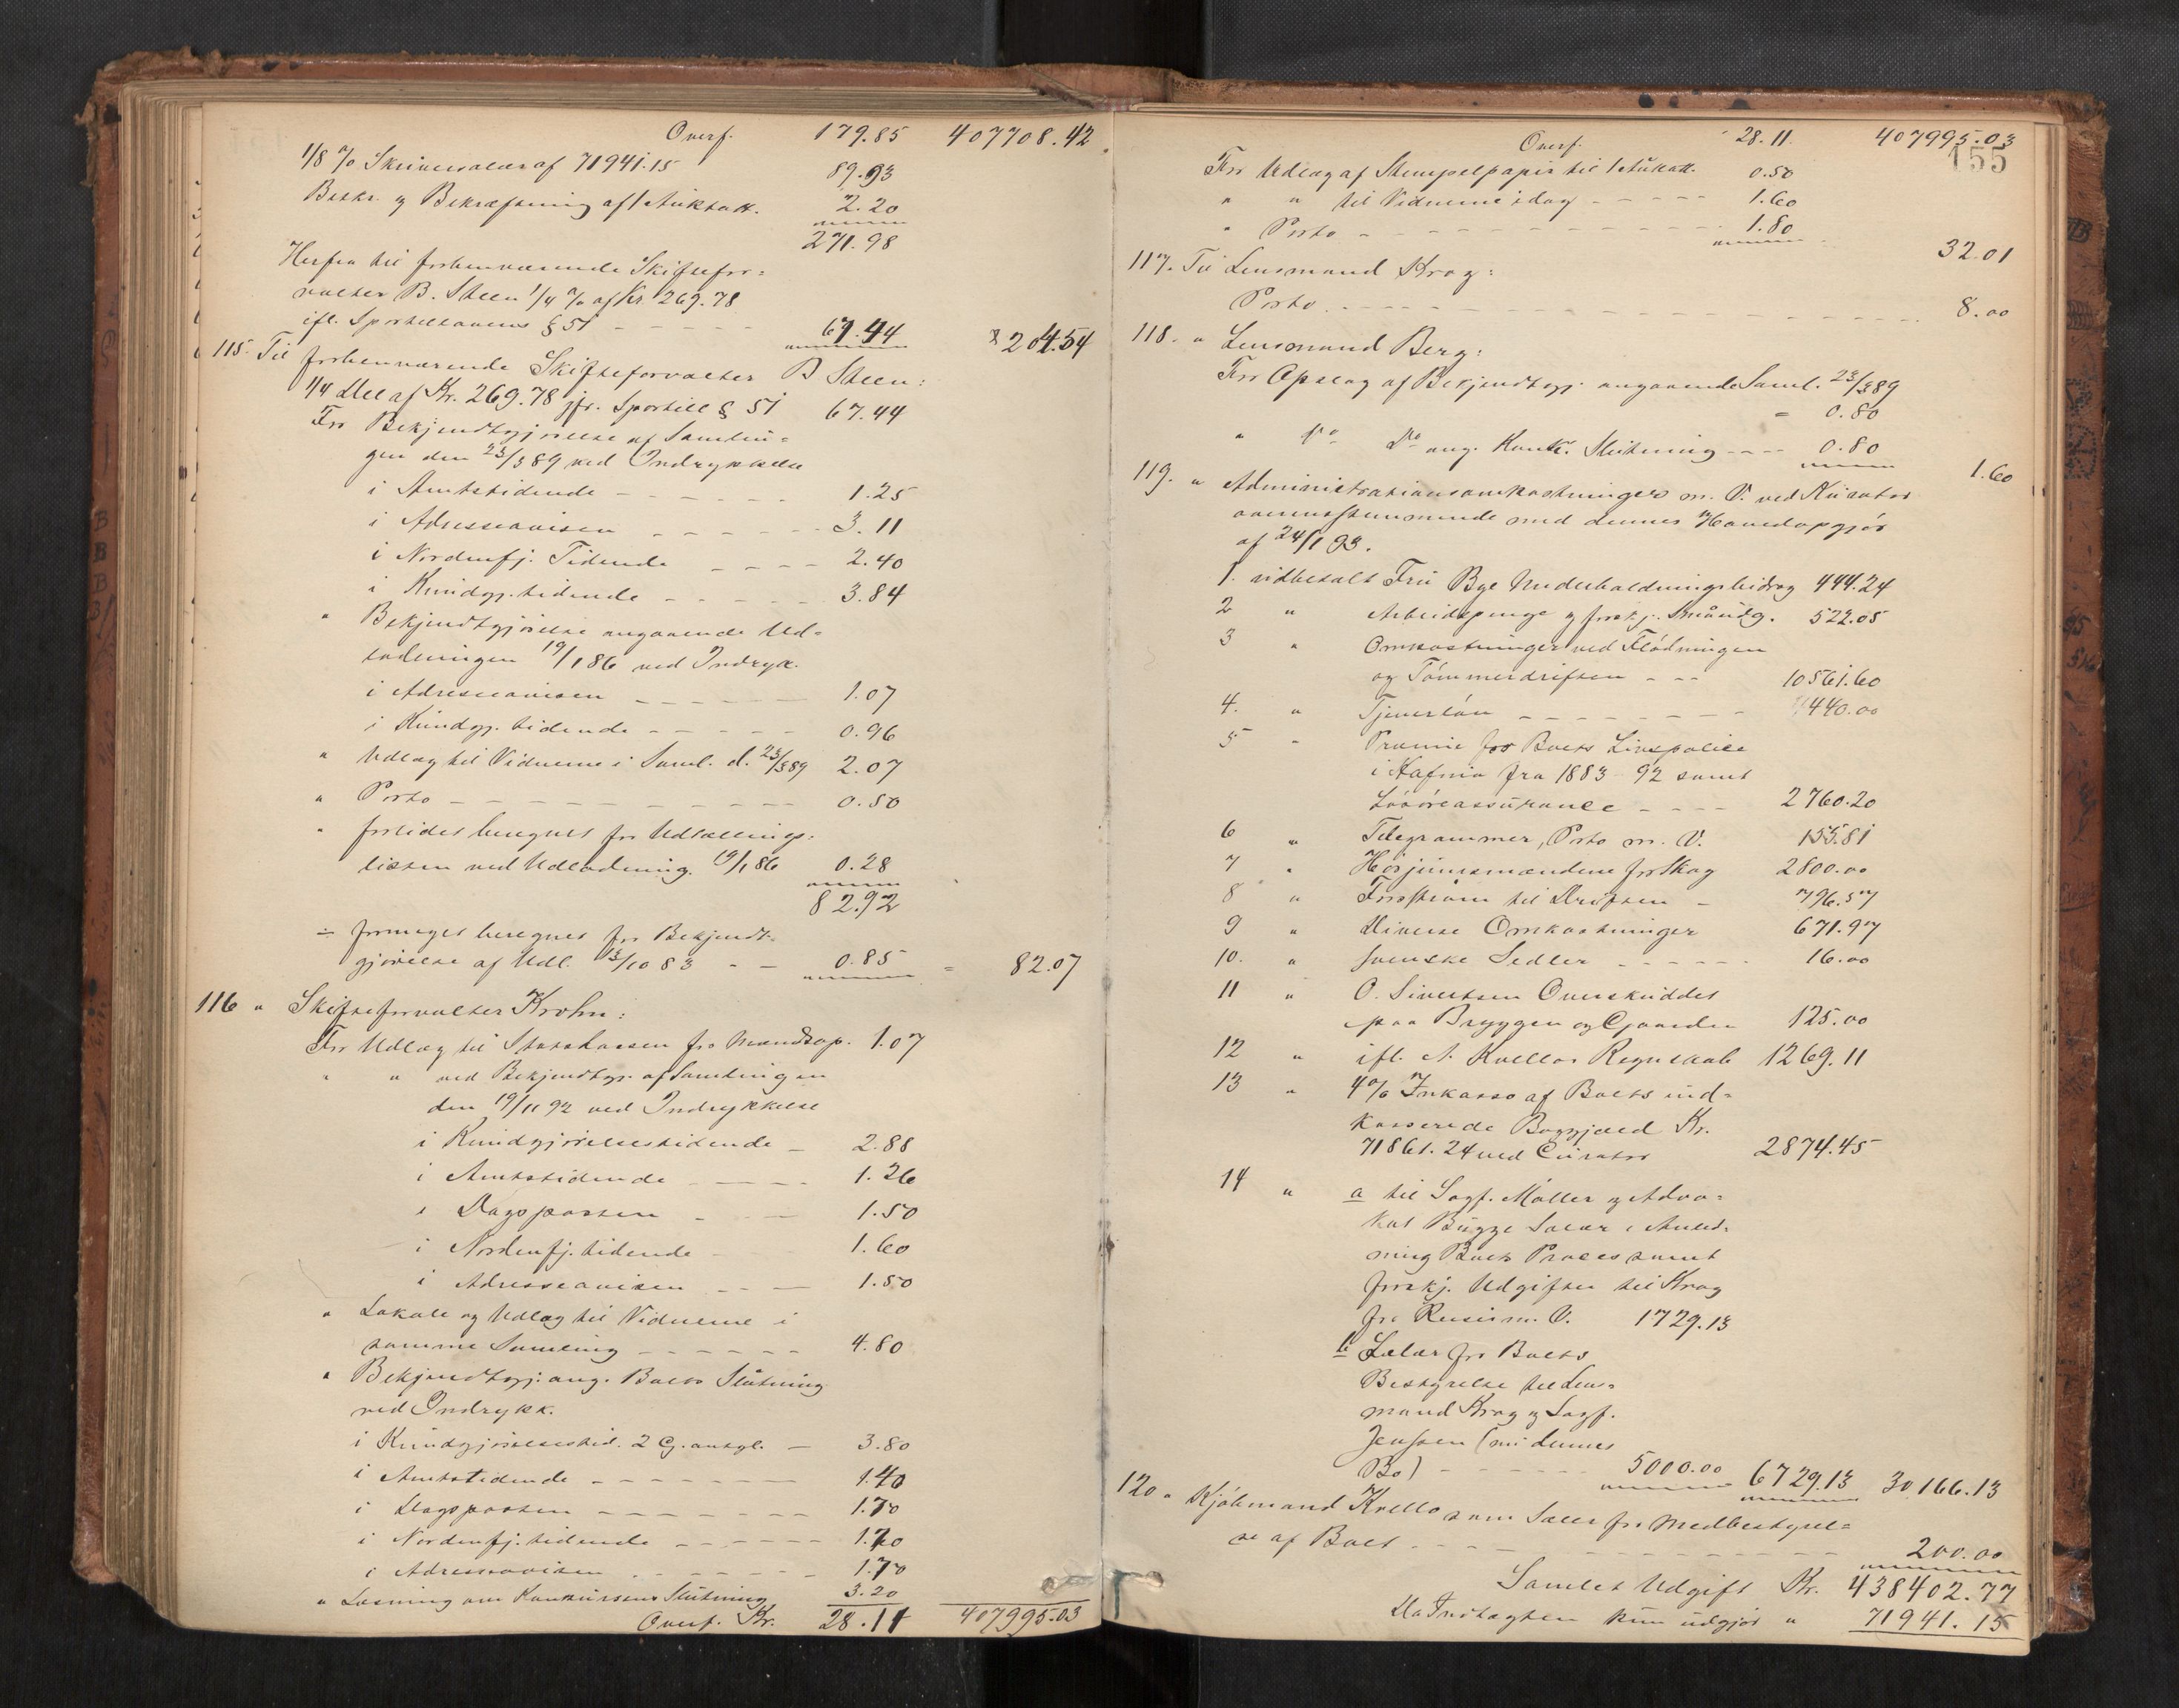 Overf. 179.85 407708.42
1/8 % Skriversalær af 71941.15 89.93
Beskr. og Bekræftning af 1 Auktsatt. 2.20
271.98
Herfra til forhenværende Skiftefor=
valter B. Steen 1/4 % af Kr. 269.78
ifl. Sportellovens § 51 - - - - - 67.44 204.54
115. Til forhenværende Skifteforvalter B Steen:
1/4 Del af Kr. 269.78 jfr. Sportell § 51 67.44
For Bekjendtgjørelse af Samlin=
gen den 23/3 89 ved Indrykkelse
i Amtstidende - - - - - - 1.25
i Adresseavisen - - - - - - 3.11
i Nordenfj. Tidende - - - - 2.40
i Kundgj. tidende - - - - - 3.84
" Bekjendtgjørelse angaaende Ud=
lodningen 19/1 86 ved Indryk.
i Adresseavisen - - - - - - 1.07
i Kundgj. tidende - - - - - 0.96
" Udlæg til Vidnerne i Saml. d. 23/3 89 2.07
" Porto - - - - - - - - - - 0.50
" forlidet beregnet for Udlodnings=
listen ved Udlodning. 19/1 86 0.28
82.92
÷ formeget beregnet for Bekjendt-
gjørelse af Udl. 13/10 83 - - 0.85 = 82.07
116 " Skifteforvalter Krohn:
For Udlæg til Statskassen for Mandtap. 1.07
" " ved Bekjendtgj. af Samlingen
den 19/11 92 ved Indrykkelse
i Kundgjørelsestidende - 2.88
i Amtstidende - - - - 1.26
i Dagsposten - - - 1.50
i Nordenfj. tidende - 1.60
i Adresseavisen - - - 1.50
" Lokale og Udlæg til Vidnerne i
samme Samling - - - - - - 4.80
" Bekjendtgj. ang. Boets Slutning
ved Indrykk.
i Kundgjørelsestid. 2 G. antagl. - 3.80
i Amtstidende - - - - - - 1.40
i Dagsposten - - - - - - - 1.70
i Nordenfj. tidende - - - - - - 1.70
i Adresseavisen - - - - - - 1.70
" Læsning om Konkursens Slutning 3.20
Overf. Kr. 28.11 407995.03
155
Overf. 28.11 407995.03
For Udlæg af Stempelpapir til 1 Auksatt. 0.50
" " til Vidnerne idag - - - - - 1.60
" Porto - - - - - - - - - - - - 1.80 32.01
117. Til Lensmand Krog:
Porto - - - - - - - - - - - - 8.00
118. " Lensmand Berg:
For Opslag af Bekjendtgj. angaaende Saml. 23/3 89
= 0.80
" Do Do ang. Konk. Slutning - - - - 0.80 1.60
119. " Administrationsomkostninger m. V. ved Kurator
overensstemmende med dennes Hovedopgjør
af 24/1 93.
1. udbetalt Fru Bye Underholdningsbidrag 444.24
2 " Arbeidspenge og forskj. Smaaudg. 522.05
3 " Omkostninger ved Flødningen
og Tømmerdriften - - - 10561.60
4. " Tjenerløn - - - - - - - - 440.00
5 " Præmie for Boets Livspolice
i Hafnia fra 1883 - 92 samt
Løsøreassurance - - - - 2760.20
6 " Telegrammer, Porto m. V. 155.81
7 " Hösjinesmændene for Skog 2800.00
8 " Forstrøm til Driften - 796.57
9 " Diverse Omkostninger 671.97
10. " Svenske Sedler - - - - - - 16.00
11 " O. Sivertsen Overskuddet
paa Bryggen og Gaarden 125.00
12 " ifl. A. Kvellos Regnskab 1269.11
13 " 4 % Inkasso af Boets ind=
kasserede Boggjæld Kr.
71861.24 ved Curator 2874.45
14 " a til Sagf. Møller og Advo=
kat Bugge Salær i Anled=
ning Boets Proces samt
forskj. Udgifter til Krog
for Reiser m. V. 1729.13
b Salær for Boets
Bestyrelse til Lens=
mand Krog og Sagf.
Jenssen (nu dennes
Bo) - - - - - - 5000.00 6729.13 30166.13
120 " Kjøbmand Kvello som Salær for Medbestyrel=
se af Boet - - - - - - - - - - 200.00
Samlet Udgift Kr. 438402.77
Da Indtægten kun udgjør " 71941.15